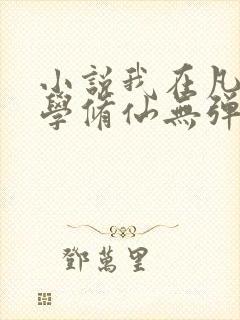 小説我在凡
學脩仙無彈
鄧萬里